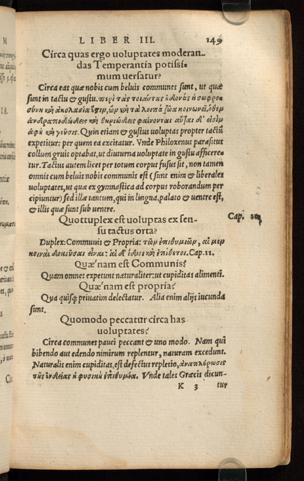 LIBER III. 149
Circa quas ergo uoluptates moderan-
das Temperantia potissi-
mum uersatur?
Circa eas quæ nobis cum beluis communes sunt, ut quæ
sunt in tactu & gustu. περὶ τὰς τοιαύτας
Quin etiam & gustus uoluptas propter tactũ
expetitur: per quem ea excitatur. Vnde Philoxenus parasitus
collum gruis optabat, ut diuturna uoluptate in gustu afficere‑
tur. Tactus autem licet per totum corpus fusus sit, non tamen
omnis cum beluis nobis communis est (sunt enim & liberales
uoluptates, ut quæ ex gymnastica ad corpus roborandum per
cipiuntur) sed illa tantum, qui in lingua, palato & uentre est,
& illis quæ sunt sub uentre.
Quottuplex est uoluptas ex sen-
su tactus orta?
Cap.
Duplex: Communis & Propria: τῶν ἐπιθυμιῶν, αἱ μὲν
κοιναὶ δοκοῦσιν εἶναι: αἱ δ' ἴδιοι καὶ ἐπίθετοι. Cap. 11.
Quæ nam est Communis?
Quam omnes expetunt naturaliter: ut cupiditas alimenti.
Quæ nam est propria?
Qua quisq; priuatim delectatur. Alia enim alijs iucunda
sunt.
Quomodo peccatur circa has
uoluptates?
Circa communes pauci peccant & uno modo. Nam qui
bibendo aut edendo nimirum replentur, naturam excedunt.
Naturalis enim cupiditas, est defectus repletio, ἀναπλήρωσις
τῆς ἐνδείας ἡ φυσικὴ ἐπιθυμία. Vnde tales Græcis dicun-
K 3 tur